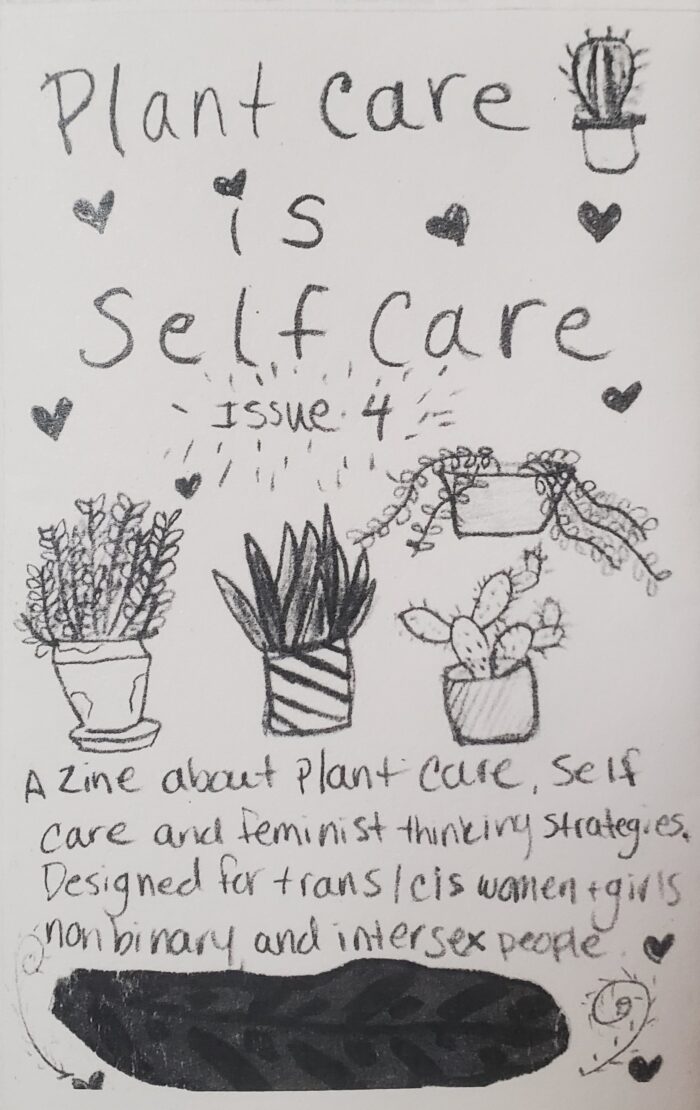 Plant Care
is
Self Care
Issue 4
A Zine about Plant Care, Self
Care and feminist thinking strategies.
Designed for trans/cis women + girls
nonbinary and intersex people